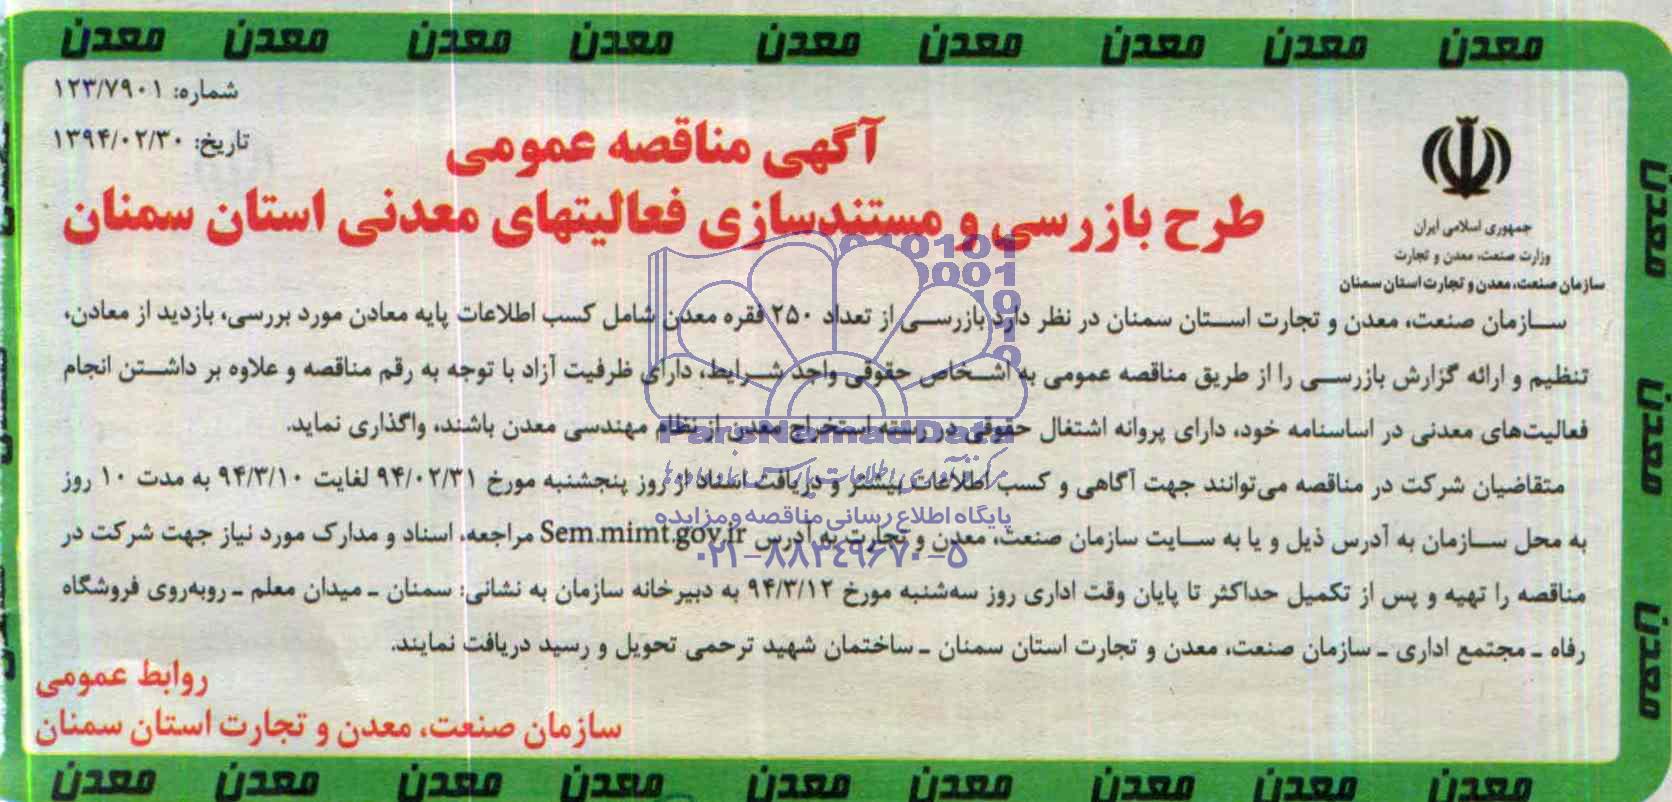 معدن معدن معدن معدن معدن معدن معدن معدن معدن
شماره: ۱۲۳/۷۹۰۱
تاریخ: ۱۳۹۴/۰۲/۳۰
جمهوری اسلامی ایران
وزارت صنعت، معدن و تجارت
سازمان صنعت، معدن و تجارت استان سمنان
آگهی مناقصه عمومی
طرح بازرسی و مستندسازی فعالیتهای معدنی استان سمنان
سازمان صنعت، معدن و تجارت استان سمنان در نظر دارد بازرسی از تعداد ۲۵۰ فقره معدن شامل کسب اطلاعات پایه معادن مورد بررسی، بازدید از معادن،
تنظیم و ارائه گزارش بازرسی را از طریق مناقصه عمومی به اشخاص حقوقی واجد شرایط، دارای ظرفیت آزاد با توجه به رقم مناقصه و علاوه بر داشتن انجام
فعالیت‌های معدنی در اساسنامه خود، دارای پروانه اشتغال حقوقی در رسته استخراج معدن از نظام مهندسی معدن باشند، واگذاری نماید.
متقاضیان شرکت در مناقصه می‌توانند جهت آگاهی و کسب اطلاعات بیشتر و دریافت اسناد از روز پنجشنبه مورخ ۹۴/۰۲/۳۱ لغایت ۹۴/۳/۱۰ به مدت ۱۰ روز
به محل سازمان به آدرس ذیل و یا به سایت سازمان صنعت، معدن و تجارت به آدرس Sem.mimt.gov.ir مراجعه، اسناد و مدارک مورد نیاز جهت شرکت در
مناقصه را تهیه و پس از تکمیل حداکثر تا پایان وقت اداری روز سه‌شنبه مورخ ۹۴/۳/۱۲ به دبیرخانه سازمان به نشانی: سمنان ـ میدان معلم ـ روبه‌روی فروشگاه
رفاه ـ مجتمع اداری ـ سازمان صنعت، معدن و تجارت استان سمنان ـ ساختمان شهید ترحمی تحویل و رسید دریافت نمایند.
روابط عمومی
سازمان صنعت، معدن و تجارت استان سمنان
ParsNamadData
پایگاه اطلاع رسانی مناقصه و مزایده
۰۲۱-۸۸۳۴۹۶۷۰-۵
معدن معدن معدن معدن معدن معدن معدن معدن معدن
معدن
معدن
معدن